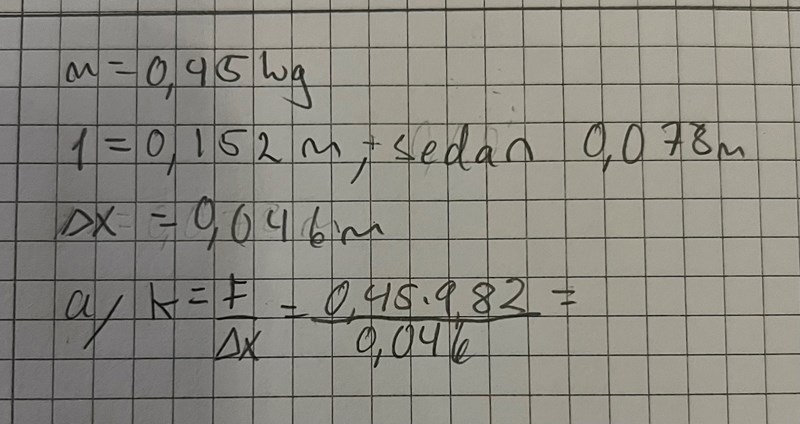 m = 0,45 kg
l = 0,152 m, + sedan 0,078 m
Δx = 0,046 m
a/ k = F/Δx = 0,45·9,82/0,046 =